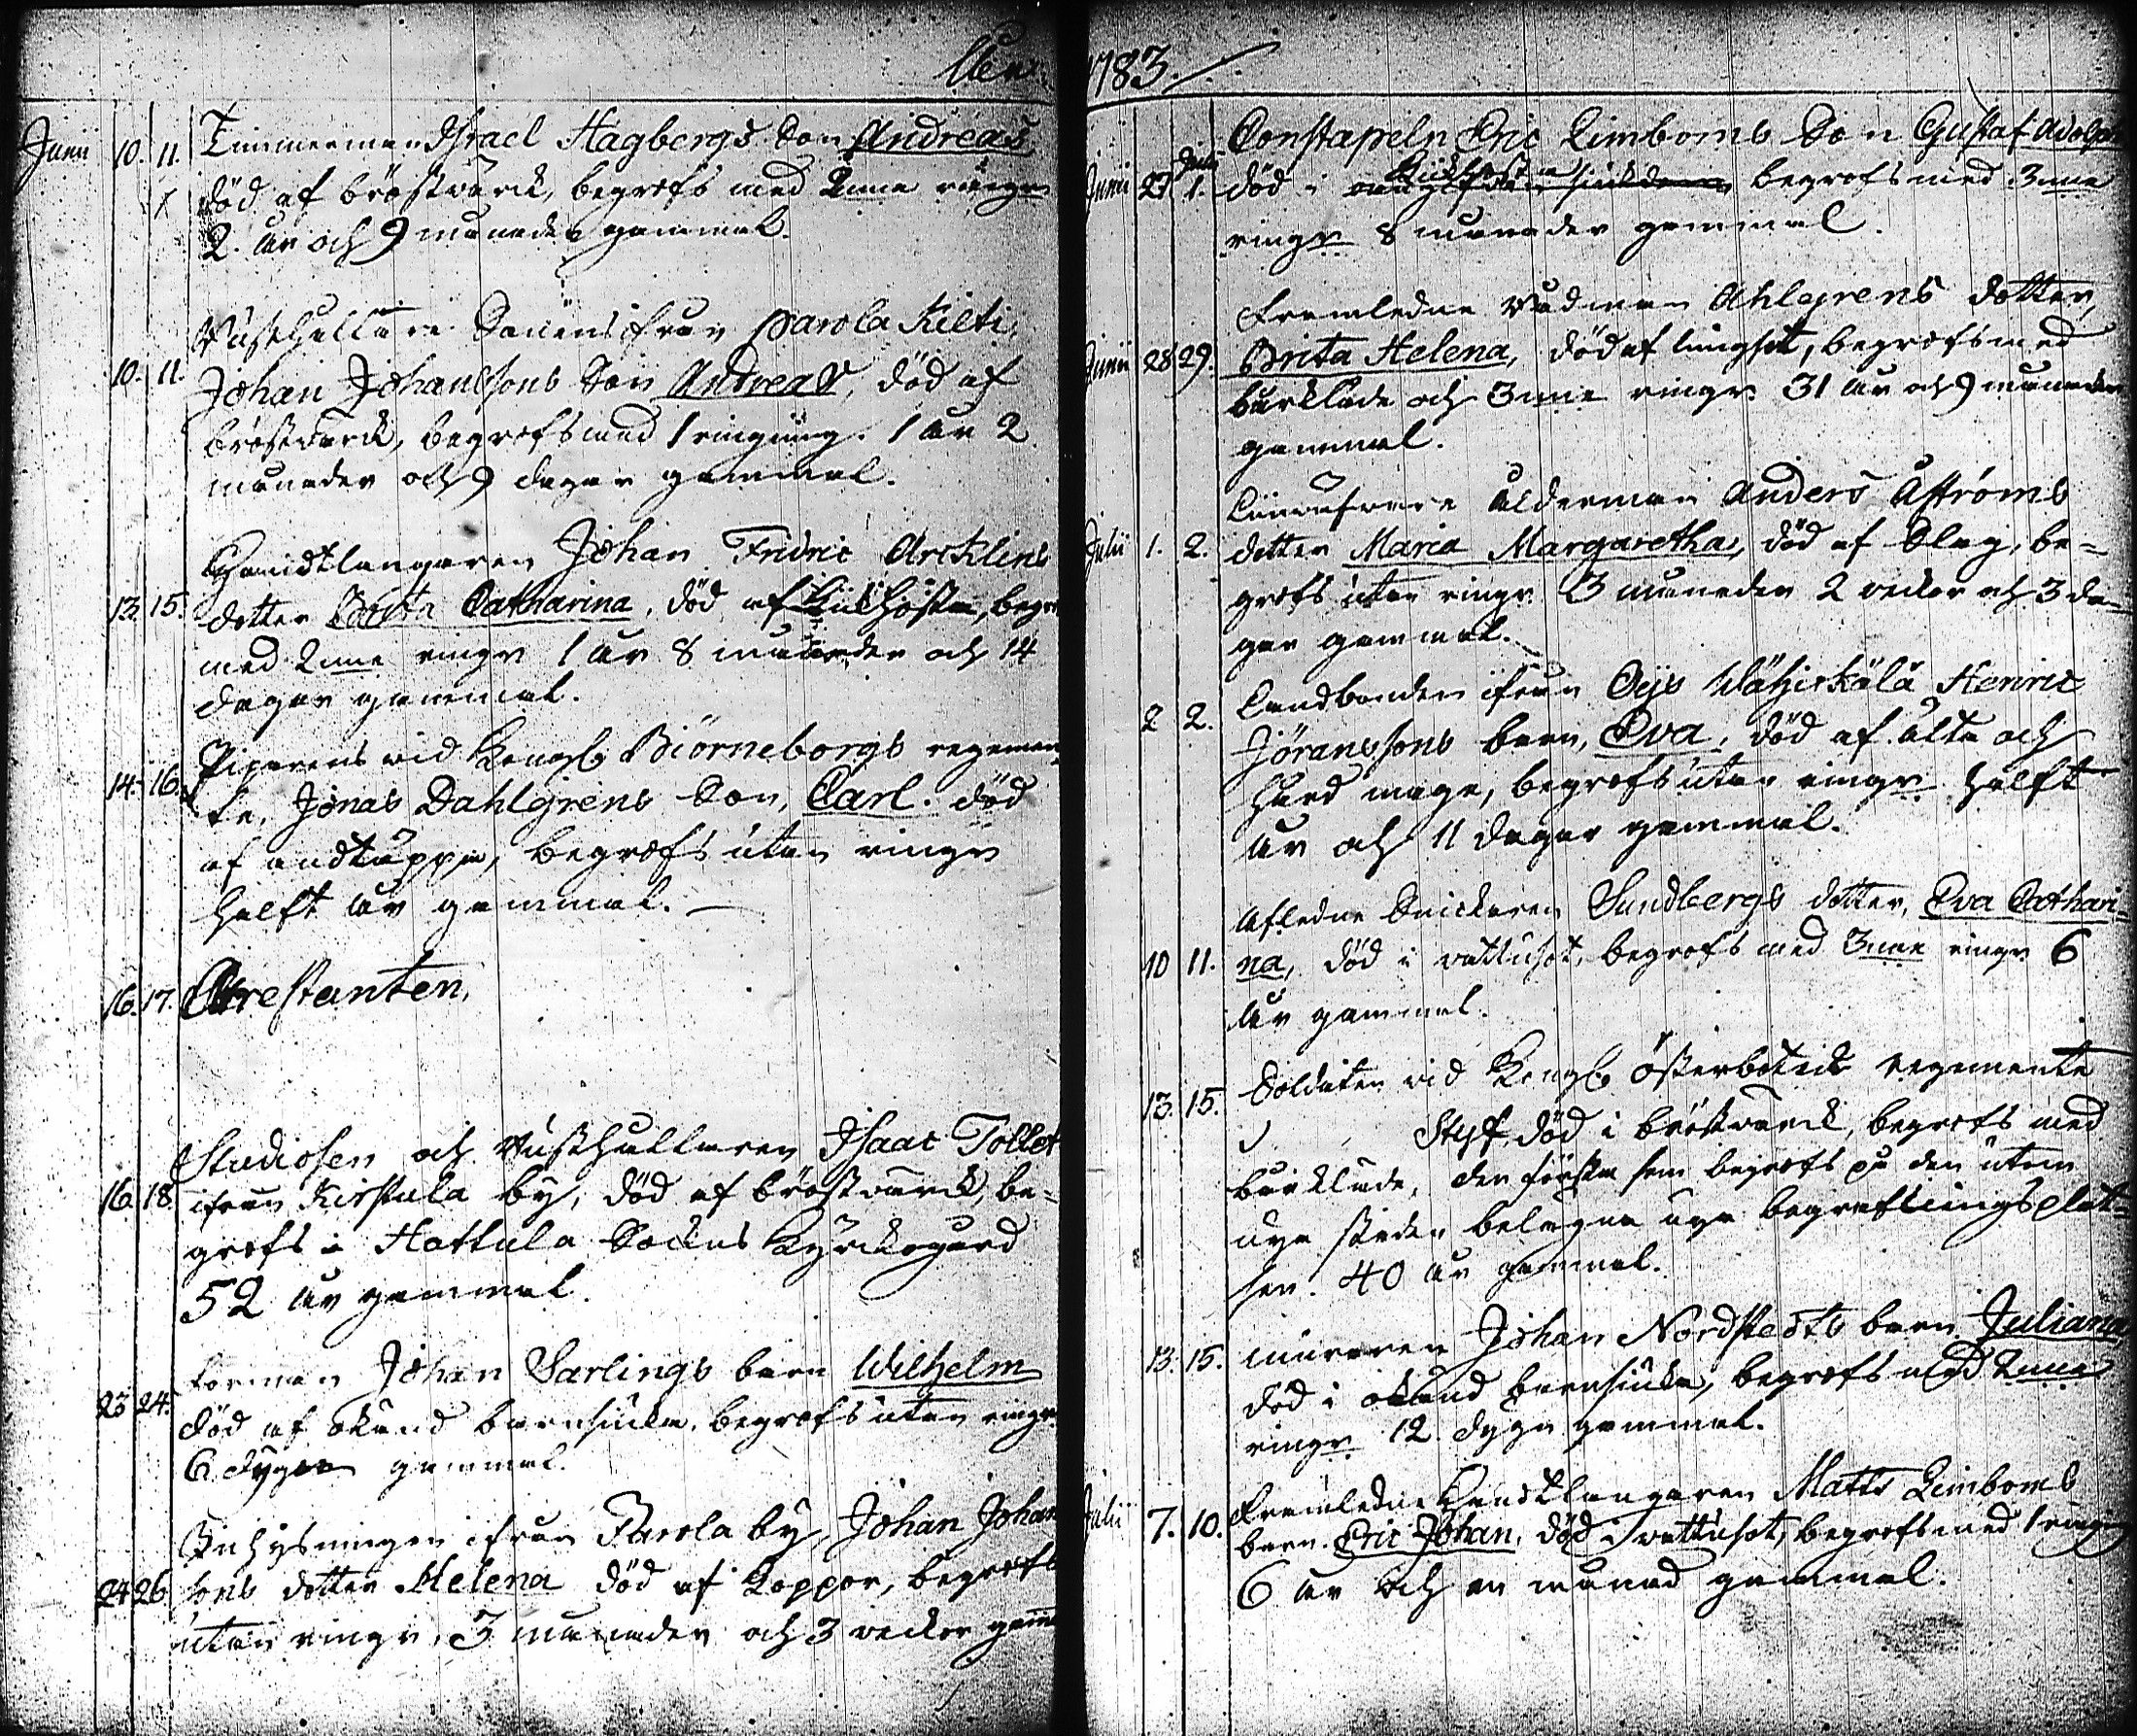 Åhr
Junii 10. 11. Timmerman Israel Hagbergs Son Andreas
död af bröstwärck, begrofs med 2nne ringn
2 år och 9 månader gammal.
Rusthållare Sonens ifrån Parola Kilti,
10. 11. Johan Johanssons Son Andreas, död af
bröstwärck, begrofs med 1 ringning. 1 år 2
månader och 9 dagar gammal.
Handtlangaren Johan Fridric Arcklins
13. 15. dotter Catharina, död af Kikhosta, begr
med 2nne ringn 1 år 8 månader och 14
dagar gammal.
Piparens wid Kongl. Biörneborgs regemen
14. 16. te, Jonas Dahlgrens Son, Carl. död
af andtäppa, begrofs utan ringn
halft år gammal.
16. 17. Arrestanten,
Studiosen och Rusthållaren Isaac Tollet
16. 18. ifrån Kirstula by, död af bröstwärck, be=
grofs i Hattula Sockns Kyrckogård
52 år gammal.
Forman Johan Sarlings barn Wilhelm
23 24. död af okänd barnsiuka, begrofs utan ringn
6 dygn gammal.
Inhysningen ifrån Parola by, Johan Johan
24 26 sons dotter Helena död af Koppor, begrofs
utan ringn, 3 månader och 3 weckor gam
1783.
Constapeln Eric Limboms Son Gustaf Adolph
Junii 27. 1. död i Kikhosta begrofs med 3nne
ringn 8 månader gammal.
Framledne Rådman Ahlgrens dotter,
Junii 28 29. Brita Helena, död af lungsot, begrofs med
bårkläde och 3nne ringn 31 år och 9 månader
gammal.
Ålderman Anders Åströms
Julii 1. 2. dotter Maria Margaretha, död af Slag, be=
grofs utan ringn 3 månader 2 weckor och 3 da
gar gammal.
Landbonden ifrån Ojs Wähirkälä Henric
2 2. Jöranssons barn, Eva, död af älta och
hård mage, begrofs utan ringn halft
år och 11 dagar gammal.
Afledne Snickaren Sundbergs dotter, Eva Cathari=
10 11. na, död i wattusot, begrofs med 3nne ringn 6
år gammal.
13. 15. Soldaten wid Kongl. Österbotens regemente
Styf död i bröstwärck, begrofs med
bårkläde, den första som begrofs på den utom
nya staden belägna nya begrafningsplat=
sen. 40 år gammal.
13. 15. muraren Johan Nordstedts barn Juliana
död i okänd barnsiuka, begrofs med 2nne
ringn 12 dygn gammal.
Framledne Handtlangaren Matts Limboms
Julii 7. 10. barn. Eric Johan, död i wattusot, begrofs med 1 ringn
6 år och en månad gammal.